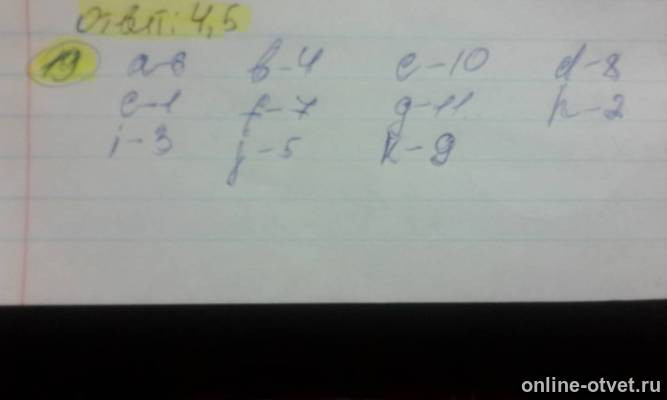 Ответ: 4,5
19 a-6 b-4 c-10 d-8
e-1 f-7 g-11 h-2
i-3 j-5 k-9
online-otvet.ru